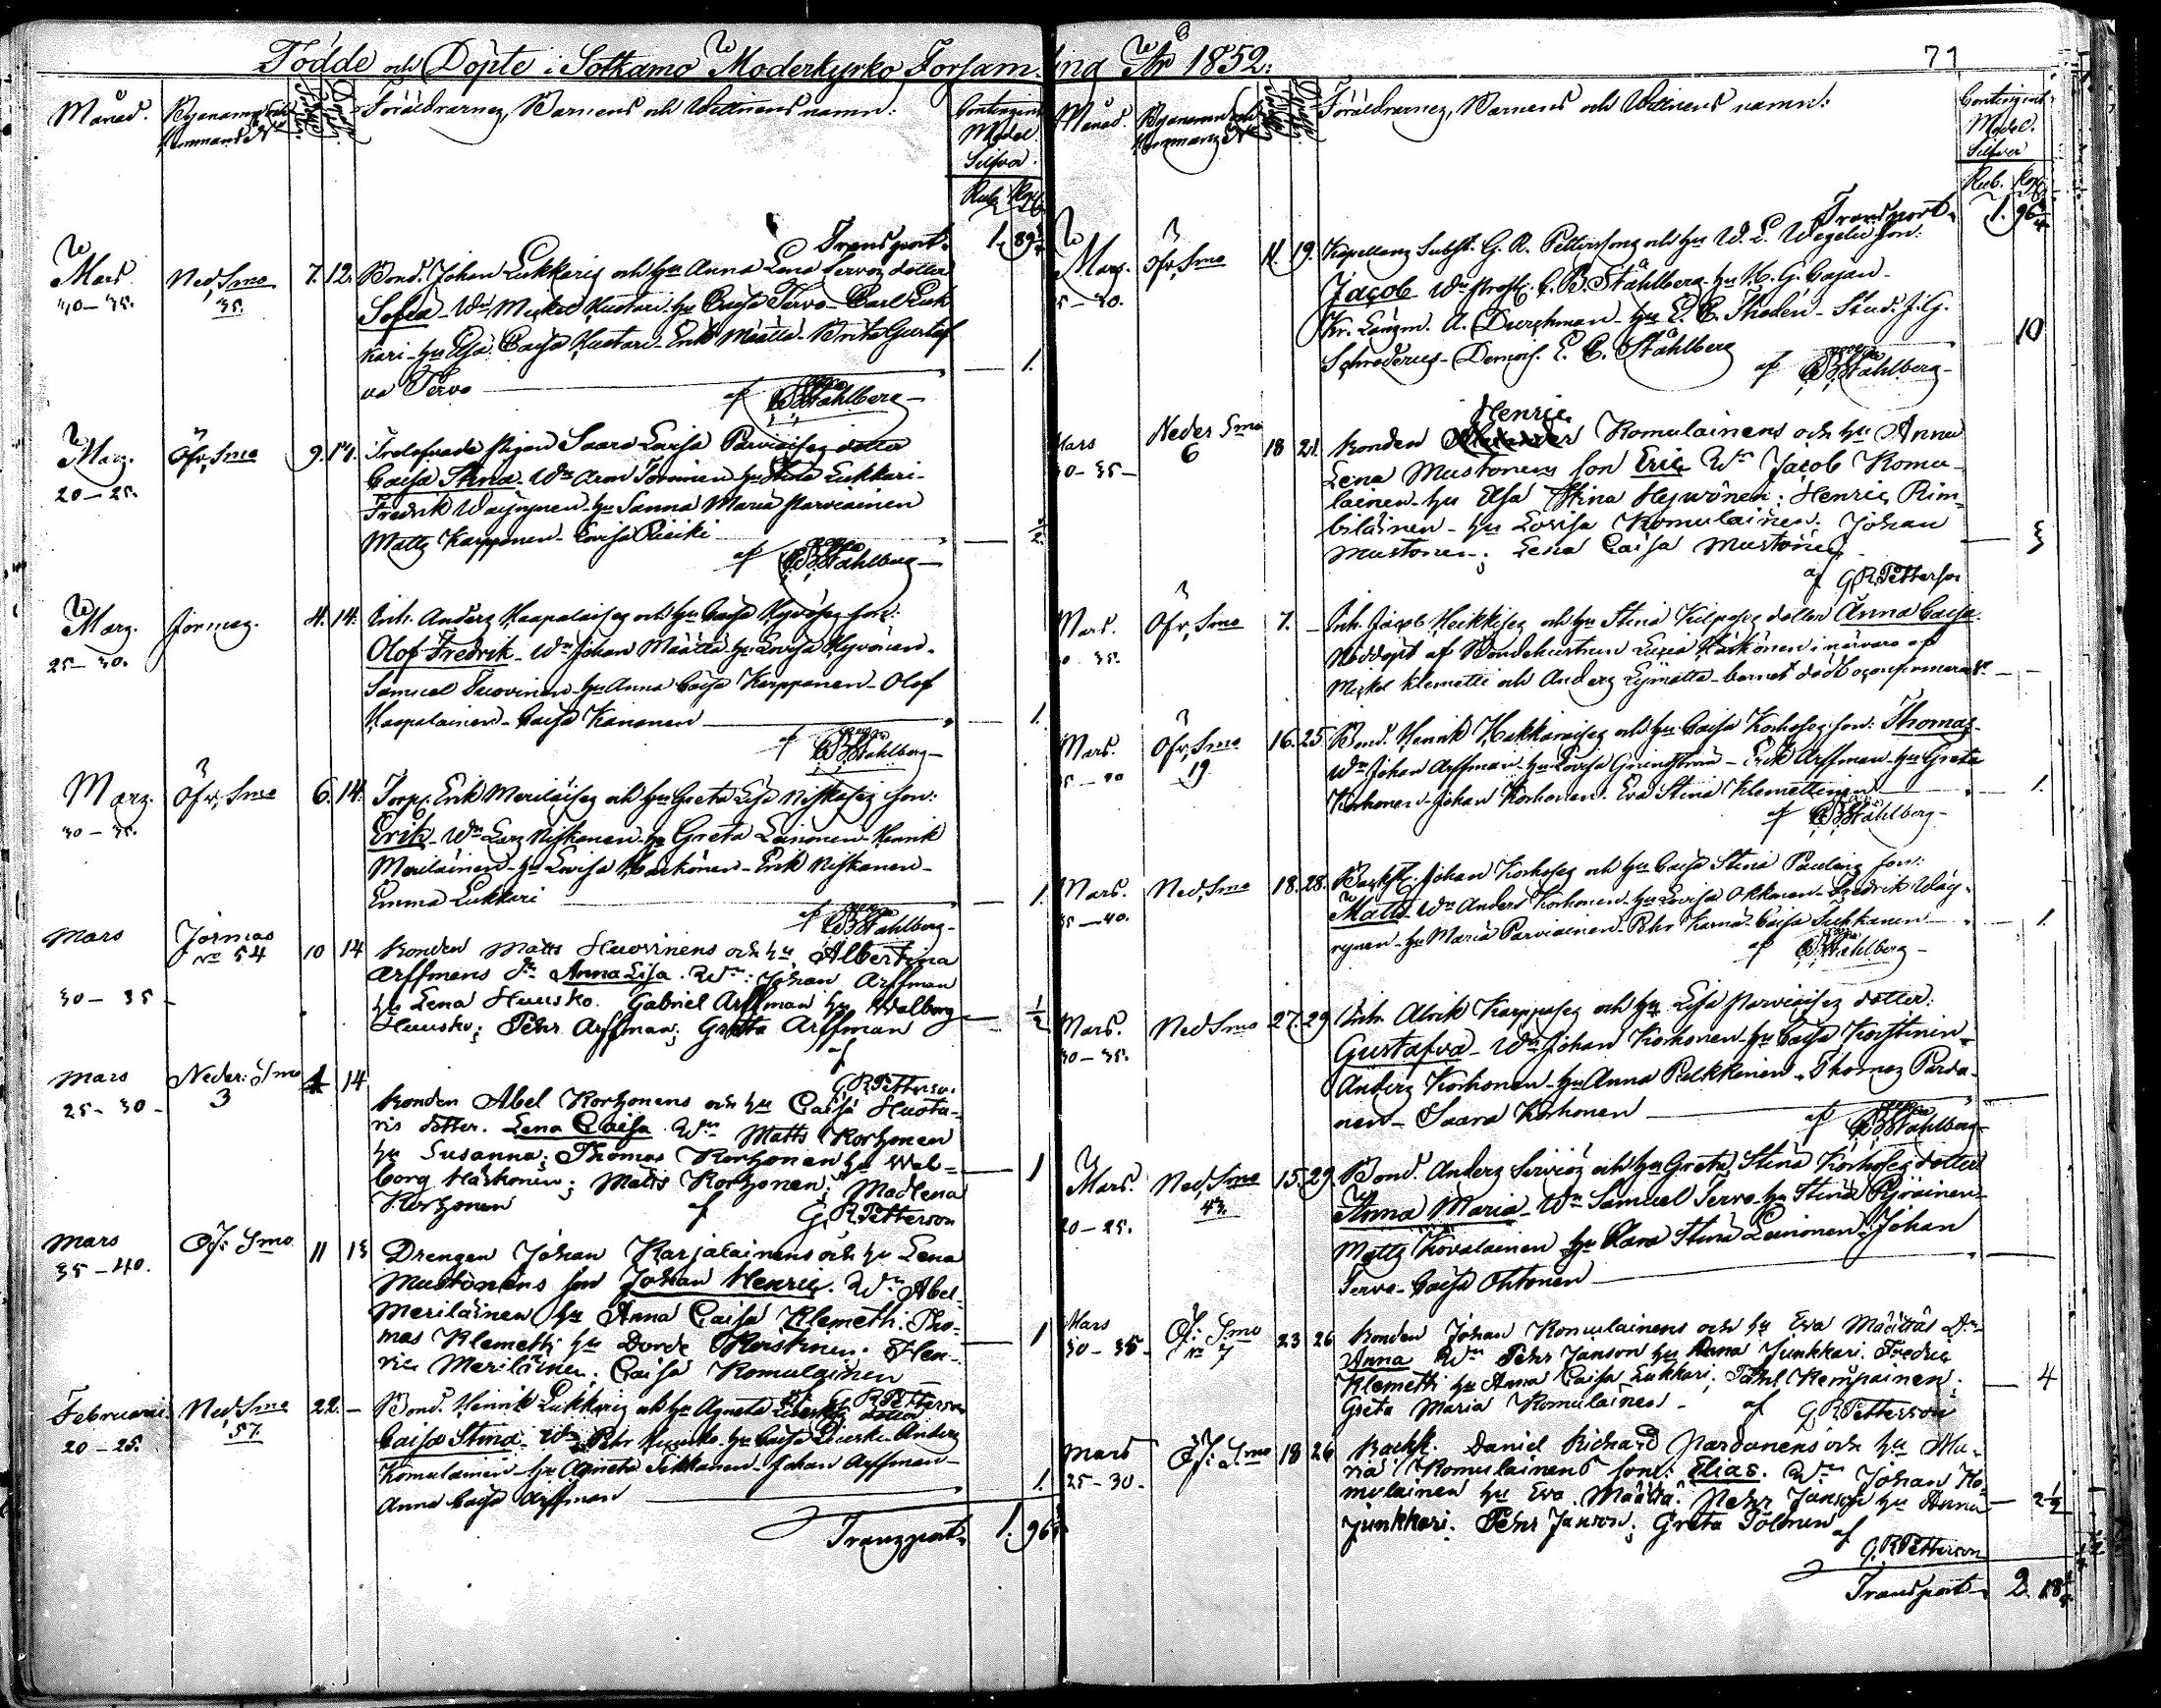 Födde och Döpte i Sotkamo Moderkyrko Församling År 1852.
71
Månad.
Föräldrarnes, Barnens och Wittnens namn:
Contingent
Medel.
Silfver
Rub. Kop.
Transport. 1. 89
Mars Ned. Smo 7. 12. Bond. Johan Lukkaris och hu Anna Lena Servos dotter
30-35. 35. Sofia Wn Mickel Huotari hu Caisa Tervo Carl Luk
kari hu Elsa Caisa Huotari Erik Määttä Brita Gustaf
va Tervo 1.
af Ståhlberg
Mars. Öfv. Smo 9. 14. Trolofvade pigan Saara Lovisa Parviaises dotter
20-25. Caisa Stina Wn Aron Torvinen hu Stina Lukkari
Fredrik Wäyrynen hu Sanna Maria Parviainen
Matts Karppanen Lovisa Piiriki ½
af Ståhlberg
Mars. Jormas. 4. 14. Inh. Anders Haapalaises och hu Caisa Hyvöses son:
25-30. Olof Fredrik Wn Johan Määttä hu Lovisa Hyvönen
Samuel Tuovinen hu Anna Caisa Karppanen Olof
Haapalainen Caisa Kananen 1.
af Ståhlberg
Mars. Öfv. Smo 6. 14. Torp. Erik Meriläises och hu Greta Lisa Niskases son:
30-35. Erik Wn Lars Niskanen hu Greta Leinonen Henrik
Meriläinen hu Lovisa Härkönen Erik Niskanen
Emma Lukkari 1.
af Ståhlberg
Mars Jormas No 54 10 14 Bonden Matts Huovinens och hu Albertina
30-35 Arffmans Dr Anna Lisa. Wn: Johan Arffman
hu Lena Huusko. Gabriel Arffman hu Walborg
Huusko; Pehr Arffman; Greta Arffman ½
af
G. R. Petterson.
Mars Neder: Smo 14
25-30 3 Bonden Abel Korhonens och hu Caisa Huota-
ris dotter. Lena Caisa Wn Matts Korhonen
hu Susanna; Thomas Korhonen hu Wal-
borg Härkönen; Matts Korhonen; Madlena 1
Korhonen af G. R. Petterson
Mars Öf: Smo 11 15 Drengen Johan Karjalainens och hu Lena
35-40. Mustonens son Johan Henric. Wn Abel
Meriläinen hu Anna Caisa Klemetti. Tho-
mas Klemetti hu Dorde Keiskinen. Hen- 1
ric Meriläinen; Caisa Romulainen
af G. R. Petterson
Februarii Ned. Smo 22. Bond. Henrik Lukkaris och hu Agneta dotter
20-25. 57. Caisa Stina Wn Pehr Huusko hu Caisa Anders
Komulainen hu Agneta Sikkanen Johan Arffman
Anna Caisa Arffman 1.
Transport 1. 96
Månad.
Föräldrarnes, Barnens och Wittnens namn:
Contingent
Medel.
Silfver
Rub. Kop.
Transport 1. 96¾
Mars. Öfv. Smo 11. 19. Kapellans Subst. G. R. Pettersons och hu W. L. Wegelii son:
Jacob Wn Prost C. B. Ståhlberg hu H. G. Cajan
Kr. Länsm. A. Durchman hu E. C. Thodén Stud. J. G.
Schroderus Demois. L. C. Ståhlberg 10
af Ståhlberg
Mars Neder Smo 18 21. Bonden Henric Komulainens och hu Anna
30-35 6 Lena Mustonens son Eric Wn Jacob Komu-
lainen hu Elsa Stina Hyvönen; Henric Rim-
biläinen hu Lovisa Komulainen; Johan
Mustonen; Lena Caisa Mustonen 3
af G. R. Petterson
Mars. Öfv. Smo 7. Inh. Jacob Heikkises och hu Stina Kilpases dotter Anna Caisa
30-35. Nöddöpt af Bondehustrun Lucia Härkönen i närvaro af
Mickel Klemetti och Anders Lijmatta barnet dödt oconfirmeradt
Mars. Öfv. Smo 16. 25 Bond. Henrik Hakkaraises och hu Caisa Korhoses son: Thomas
19 Wn Johan Arffman hu Lovisa Grönström Erik Arffman hu Greta
Korhonen Johan Korhonen Eva Stina Klemettinen 1.
af Ståhlberg
Mars. Ned. Smo 18. 28. Backst. Johan Korhoses och hu Caisa Stina Paulins son:
35-40. Matts Wn Anders Korhonen hu Lovisa Okkonen Fredrik Wäy-
rynen hu Maria Parviainen Pehr Karna Caisa Sukkanen 1.
af Ståhlberg
Mars. Ned Smo 27. 29 Inh. Alrik Karppases och hu Lisa Parviaises dotter:
30-35. Gustafva Wn Johan Korhonen hu Caisa
Anders Korhonen hu Anna Pulkkinen Thomas Parda-
nen Saara Korhonen
af Ståhlberg
Mars. Ned. Smo 15. 29. Bond. Anders Serviös och hu Greta Stina Korhoses dotter
20-25. 43. Anna Maria Wn Samuel Tervo hu Stina Pyöriäinen
Matts Kovalainen hu Clara Stina Leinonen Johan
Tervo Caisa Ohtonen
Mars Öf: Smo 23 26 Bonden Johan Komulainens och hu Eva Määttäs Dr
30-35 No 7 Anna Wn Pehr Janson hu Anna Junkkari. Fredric
Klemetti hu Anna Caisa Lukkari; Pahl Kemppainen;
Greta Maria Komulainen 4
af G. R. Petterson
Mars Öf: Smo 18 26 Backst. Daniel Richard Pardanens och hu Ma-
25-30. ria Komulainens son: Elias. Wn Johan Ko-
mulainen hu Eva Määttä. Pehr Janson hu Anna 2½
Junkkari. Pehr Janson; Greta Tolonen
af G. R. Petterson
Transport 2. 18